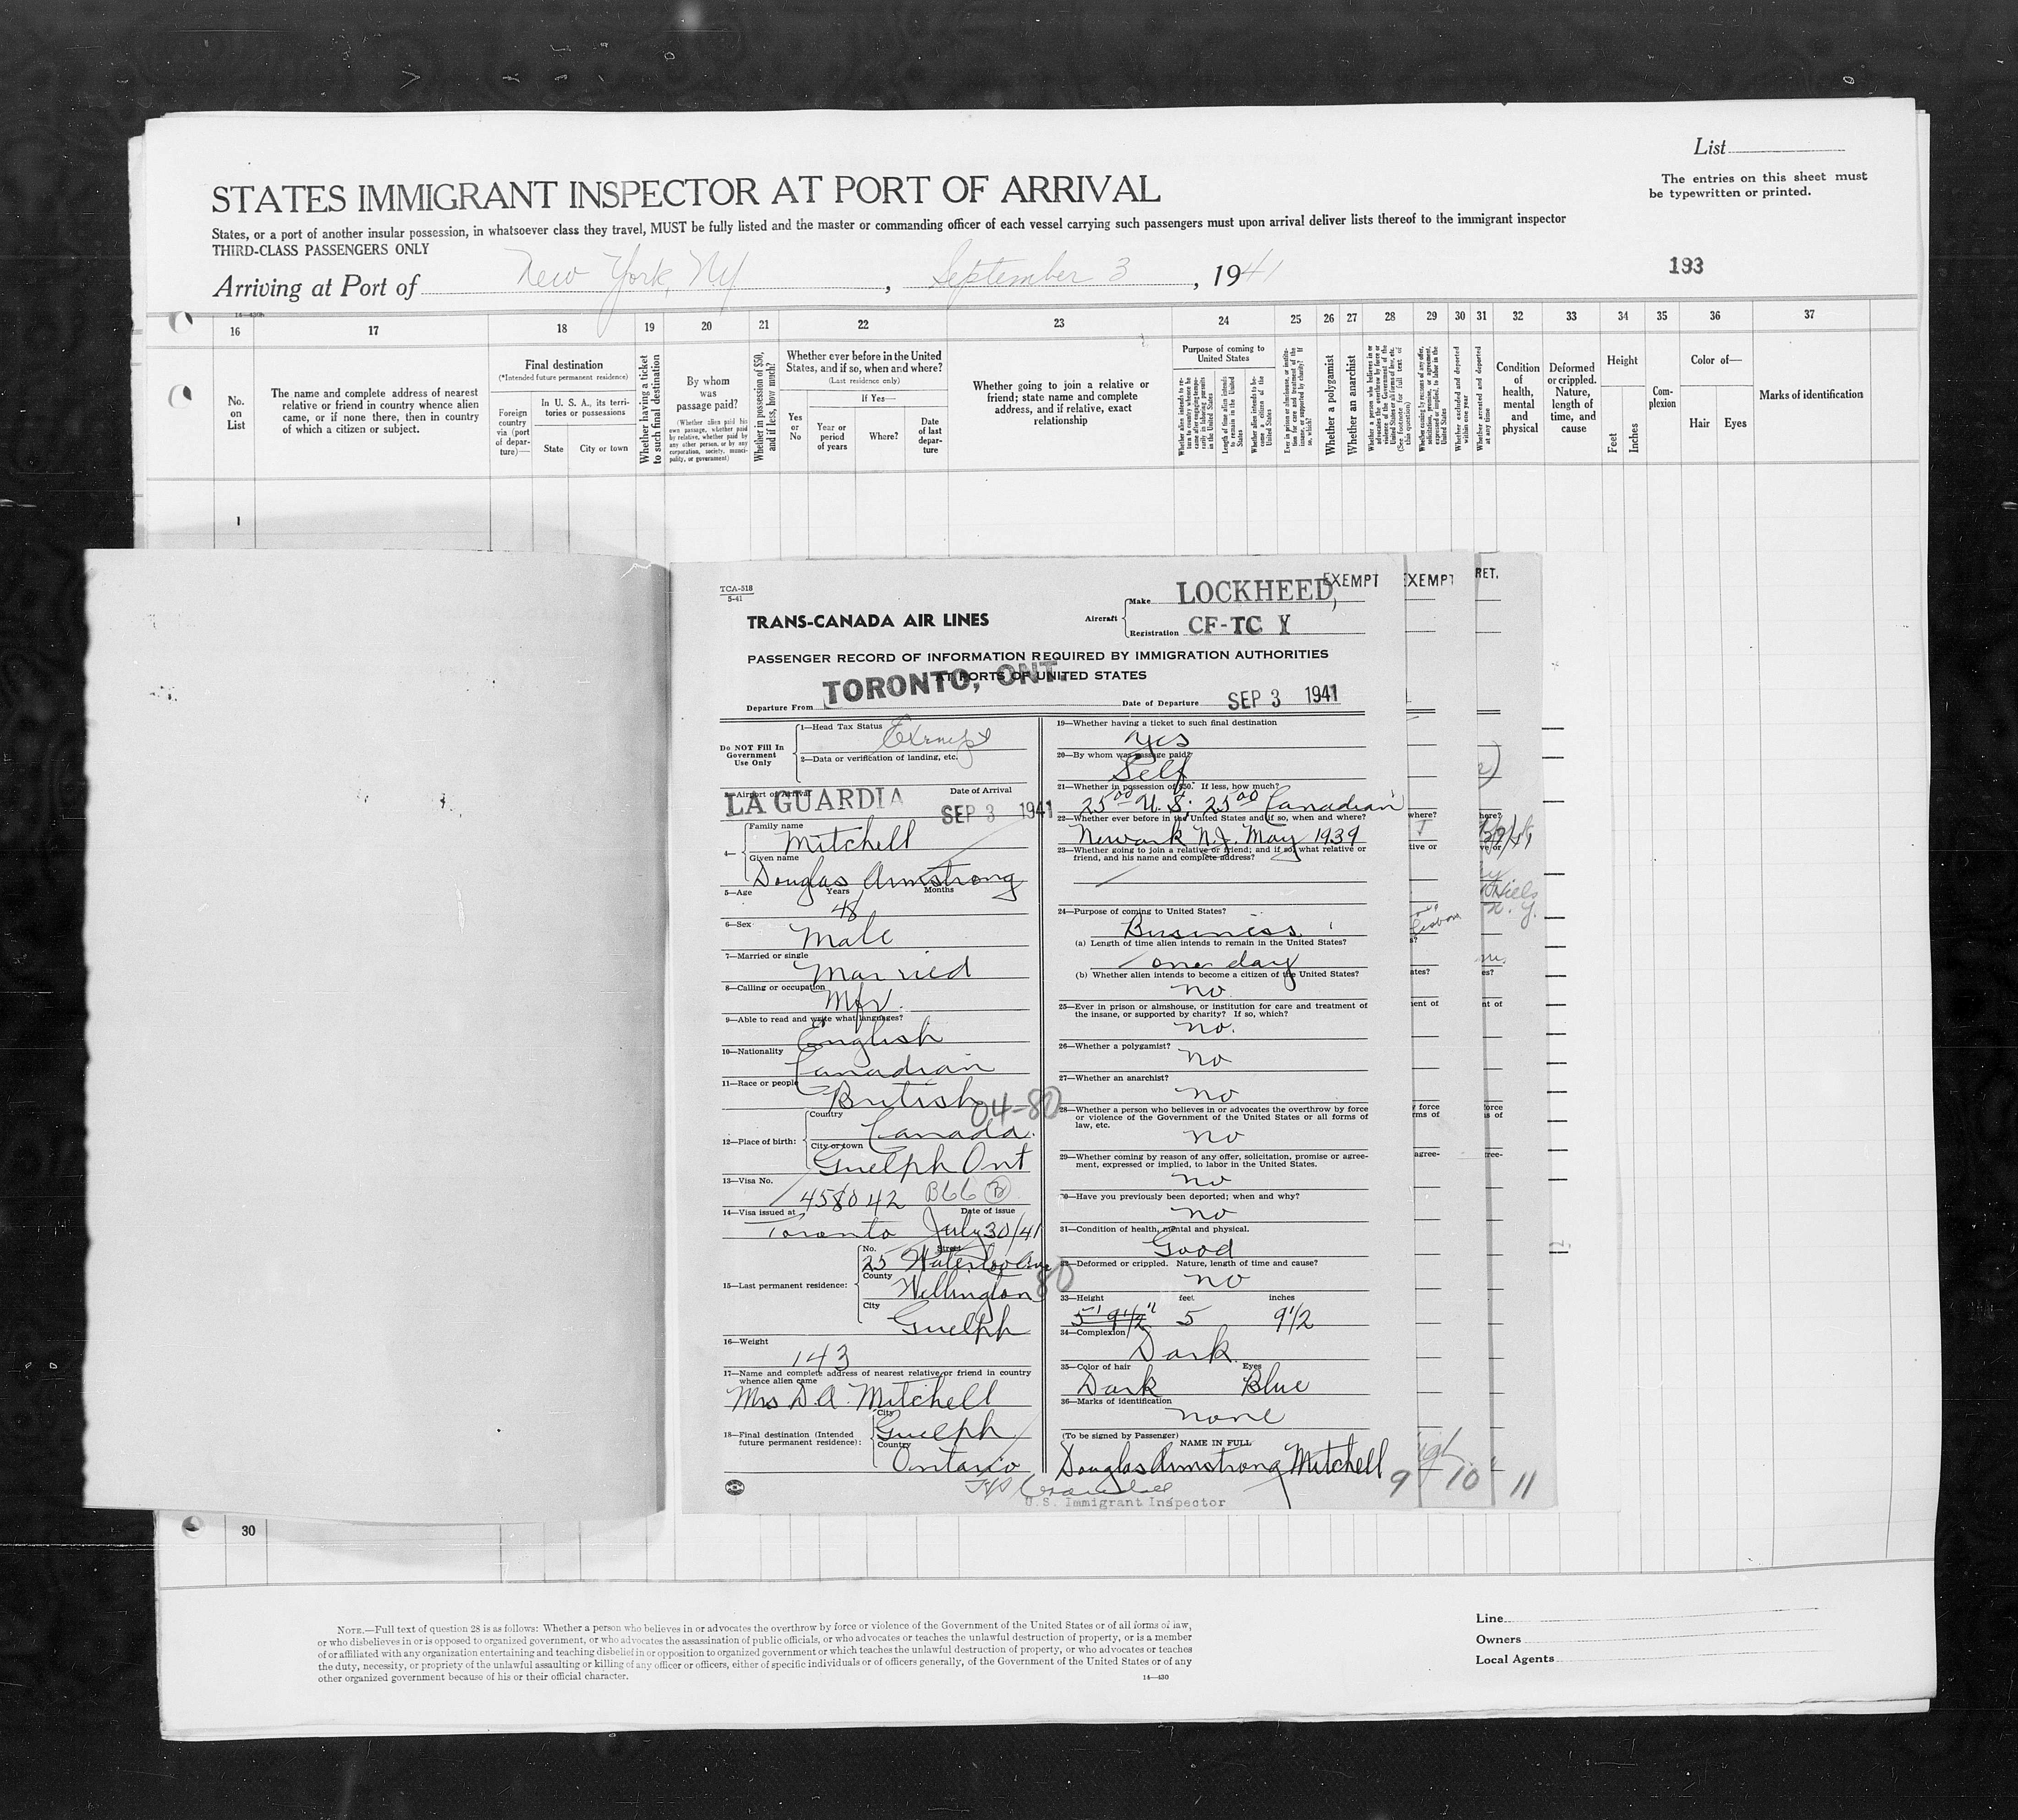 List
The entries on this sheet must
be typewritten or printed.
STATES IMMIGRANT INSPECTOR AT PORT OF ARRIVAL
States, or a port of another insular possession, in whatsoever class they travel, MUST be fully listed and the master or commanding officer of each vessel carrying such passengers must upon arrival deliver lists thereof to the immigrant inspector
THIRD-CLASS PASSENGERS ONLY
Arriving at Port of New York, NY, September 3, 1941
193
16 17 18 19 20 21 22 23 24 25 26 27 28 29 30 31 32 33 34 35 36 37
No.
on
List
The name and complete address of nearest
relative or friend in country whence alien
came, or if none there, then in country
of which a citizen or subject.
Final destination
(*Intended future permanent residence)
Foreign
country
via (port
of depar-
ture)—
In U. S. A., its terri-
tories or possessions
State
City or town
Whether having a ticket
to such final destination
By whom
was
passage paid?
(Whether alien paid his
own passage, whether paid
by relative, whether paid by
any other person, or by any
corporation, society, munici-
pality, or government)
Whether in possession of $50,
and if less, how much?
Whether ever before in the United
States, and if so, when and where?
(Last residence only)
Yes
or
No
If Yes—
Year or
period
of years
Where?
Date
of last
depar-
ture
Whether going to join a relative or
friend; state name and complete
address, and if relative, exact
relationship
Purpose of coming to
United States
Length of time alien intends
to remain in the United
States
Whether alien intends to be-
come a citizen of the
United States
Whether a polygamist
Whether an anarchist
Whether excluded and deported
within one year
Whether arrested and deported
at any time
Condition
of
health,
mental
and
physical
Deformed
or crippled.
Nature,
length of
time, and
cause
Height
Feet
Inches
Com-
plexion
Color of—
Hair
Eyes
Marks of identification
1
TCA-518
5-41
TRANS-CANADA AIR LINES
Aircraft
Make LOCKHEED,
Registration CF-TC Y
EXEMPT
EXEMPT
RET.
PASSENGER RECORD OF INFORMATION REQUIRED BY IMMIGRATION AUTHORITIES
AT PORTS OF UNITED STATES
Departure From TORONTO, ONT.
Date of Departure SEP 3 1941
Do NOT Fill In
Government
Use Only
1—Head Tax Status Exempt
2—Data or verification of landing, etc.
3—Airport of Arrival LA GUARDIA
Date of Arrival SEP 3 1941
4—
Family name Mitchell
Given name Douglas Armstrong
5—Age Years 48 Months
6—Sex Male
7—Married or single Married
8—Calling or occupation Mfr.
9—Able to read and write what languages? English
10—Nationality Canadian
11—Race or people British
04-80
12—Place of birth:
Country Canada.
City or town Guelph Ont
13—Visa No. 458042 B66 B
14—Visa issued at Toronto Date of issue July 30/41
15—Last permanent residence:
No. Street 25 Waterloo Ave
County Wellington
80
City Guelph
16—Weight 143
17—Name and complete address of nearest relative or friend in country
whence alien came
Mrs D.A. Mitchell
18—Final destination (Intended
future permanent residence):
City Guelph
Country Ontario
19—Whether having a ticket to such final destination
yes
20—By whom was passage paid?
Self
21—Whether in possession of $50. If less, how much?
25 00 U.S. 25 00 Canadian
22—Whether ever before in the United States and if so, when and where?
Newark N.J. May 1939
23—Whether going to join a relative or friend; and if so, what relative or
friend, and his name and complete address?
24—Purpose of coming to United States?
Business
(a) Length of time alien intends to remain in the United States?
one day
(b) Whether alien intends to become a citizen of the United States?
no
25—Ever in prison or almshouse, or institution for care and treatment of
the insane, or supported by charity? If so, which?
no.
26—Whether a polygamist? no
27—Whether an anarchist?
no
28—Whether a person who believes in or advocates the overthrow by force
or violence of the Government of the United States or all forms of
law, etc.
no
29—Whether coming by reason of any offer, solicitation, promise or agree-
ment, expressed or implied, to labor in the United States.
no
30—Have you previously been deported; when and why?
no
31—Condition of health, mental and physical.
Good
32—Deformed or crippled. Nature, length of time and cause?
no
33—Height feet inches
5' 9 1/2" 5 9 1/2
34—Complexion Dark
35—Color of hair Dark Eyes Blue
36—Marks of identification
none
(To be signed by Passenger)
NAME IN FULL
Douglas Armstrong Mitchell
U.S. Immigrant Inspector
9 10 11
30
NOTE.—Full text of question 28 is as follows: Whether a person who believes in or advocates the overthrow by force or violence of the Government of the United States or of all forms of law,
or who disbelieves in or is opposed to organized government, or who advocates the assassination of public officials, or who advocates or teaches the unlawful destruction of property, or is a member
of or affiliated with any organization entertaining and teaching disbelief in or opposition to organized government or which teaches the unlawful destruction of property, or who advocates or teaches
the duty, necessity, or propriety of the unlawful assaulting or killing of any officer or officers, either of specific individuals or of officers generally, of the Government of the United States or of any
other organized government because of his or their official character.
14—430
Line
Owners
Local Agents